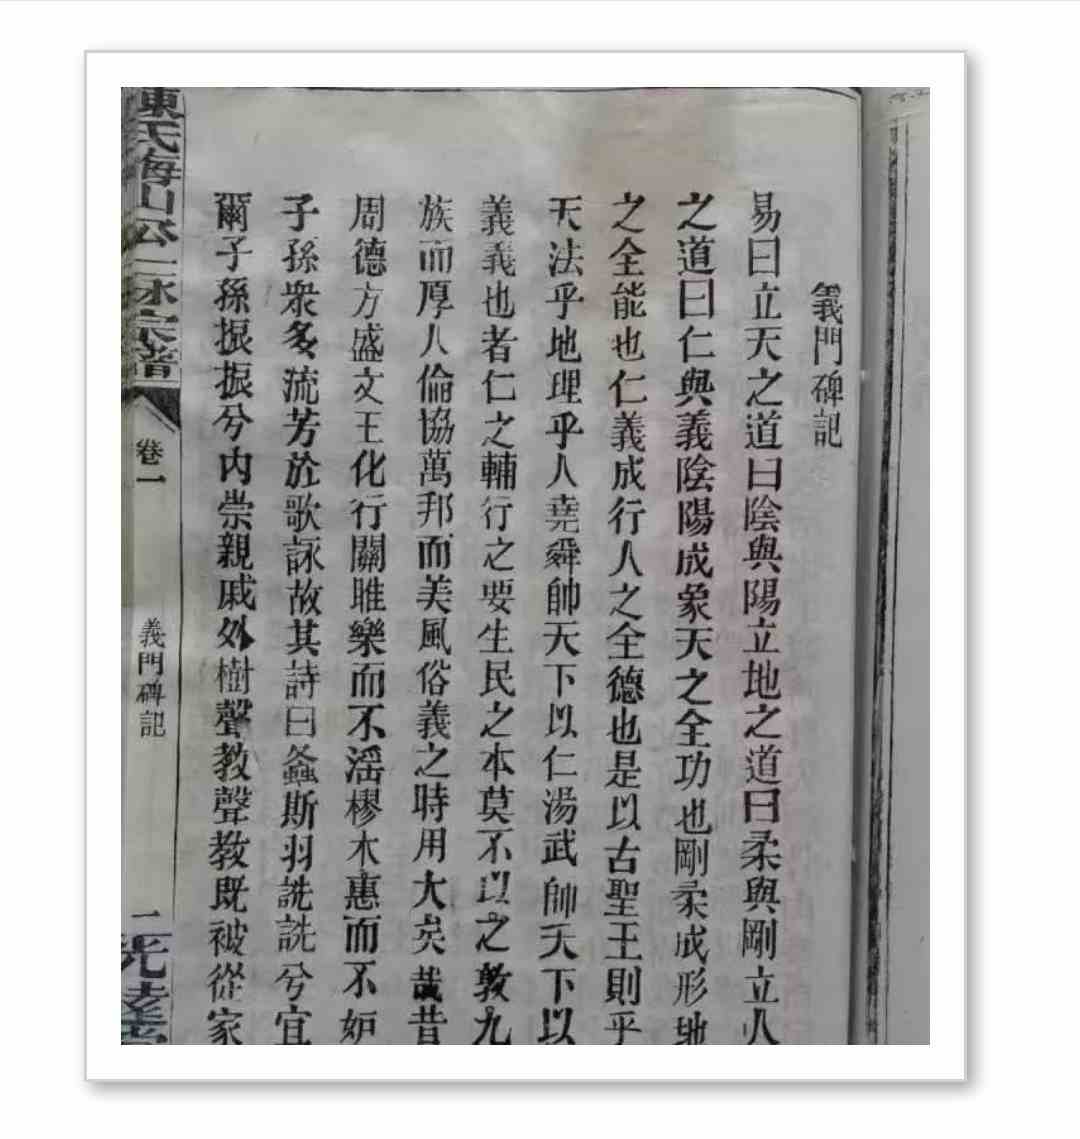 義門碑記
易曰立天之道曰陰與陽立地之道曰柔與剛立人
之道曰仁與義陰陽成象天之全功也剛柔成形地
之全能也仁義成行人之全德也是以古聖王則乎
天法乎地理乎人堯舜帥天下以仁湯武帥天下以
義義也者仁之輔行之要生民之本莫不以之敦九
族而厚人倫協萬邦而美風俗義之時用大矣哉昔
周德方盛文王化行關雎樂而不滛樛木惠而不妒
子孫衆多流芳於歌詠故其詩曰螽斯羽詵詵兮宜
爾子孫振振兮内崇親戚外樹聲教聲教既被從家
陳氏海山公三脉宗譜
卷一
義門碑記
一